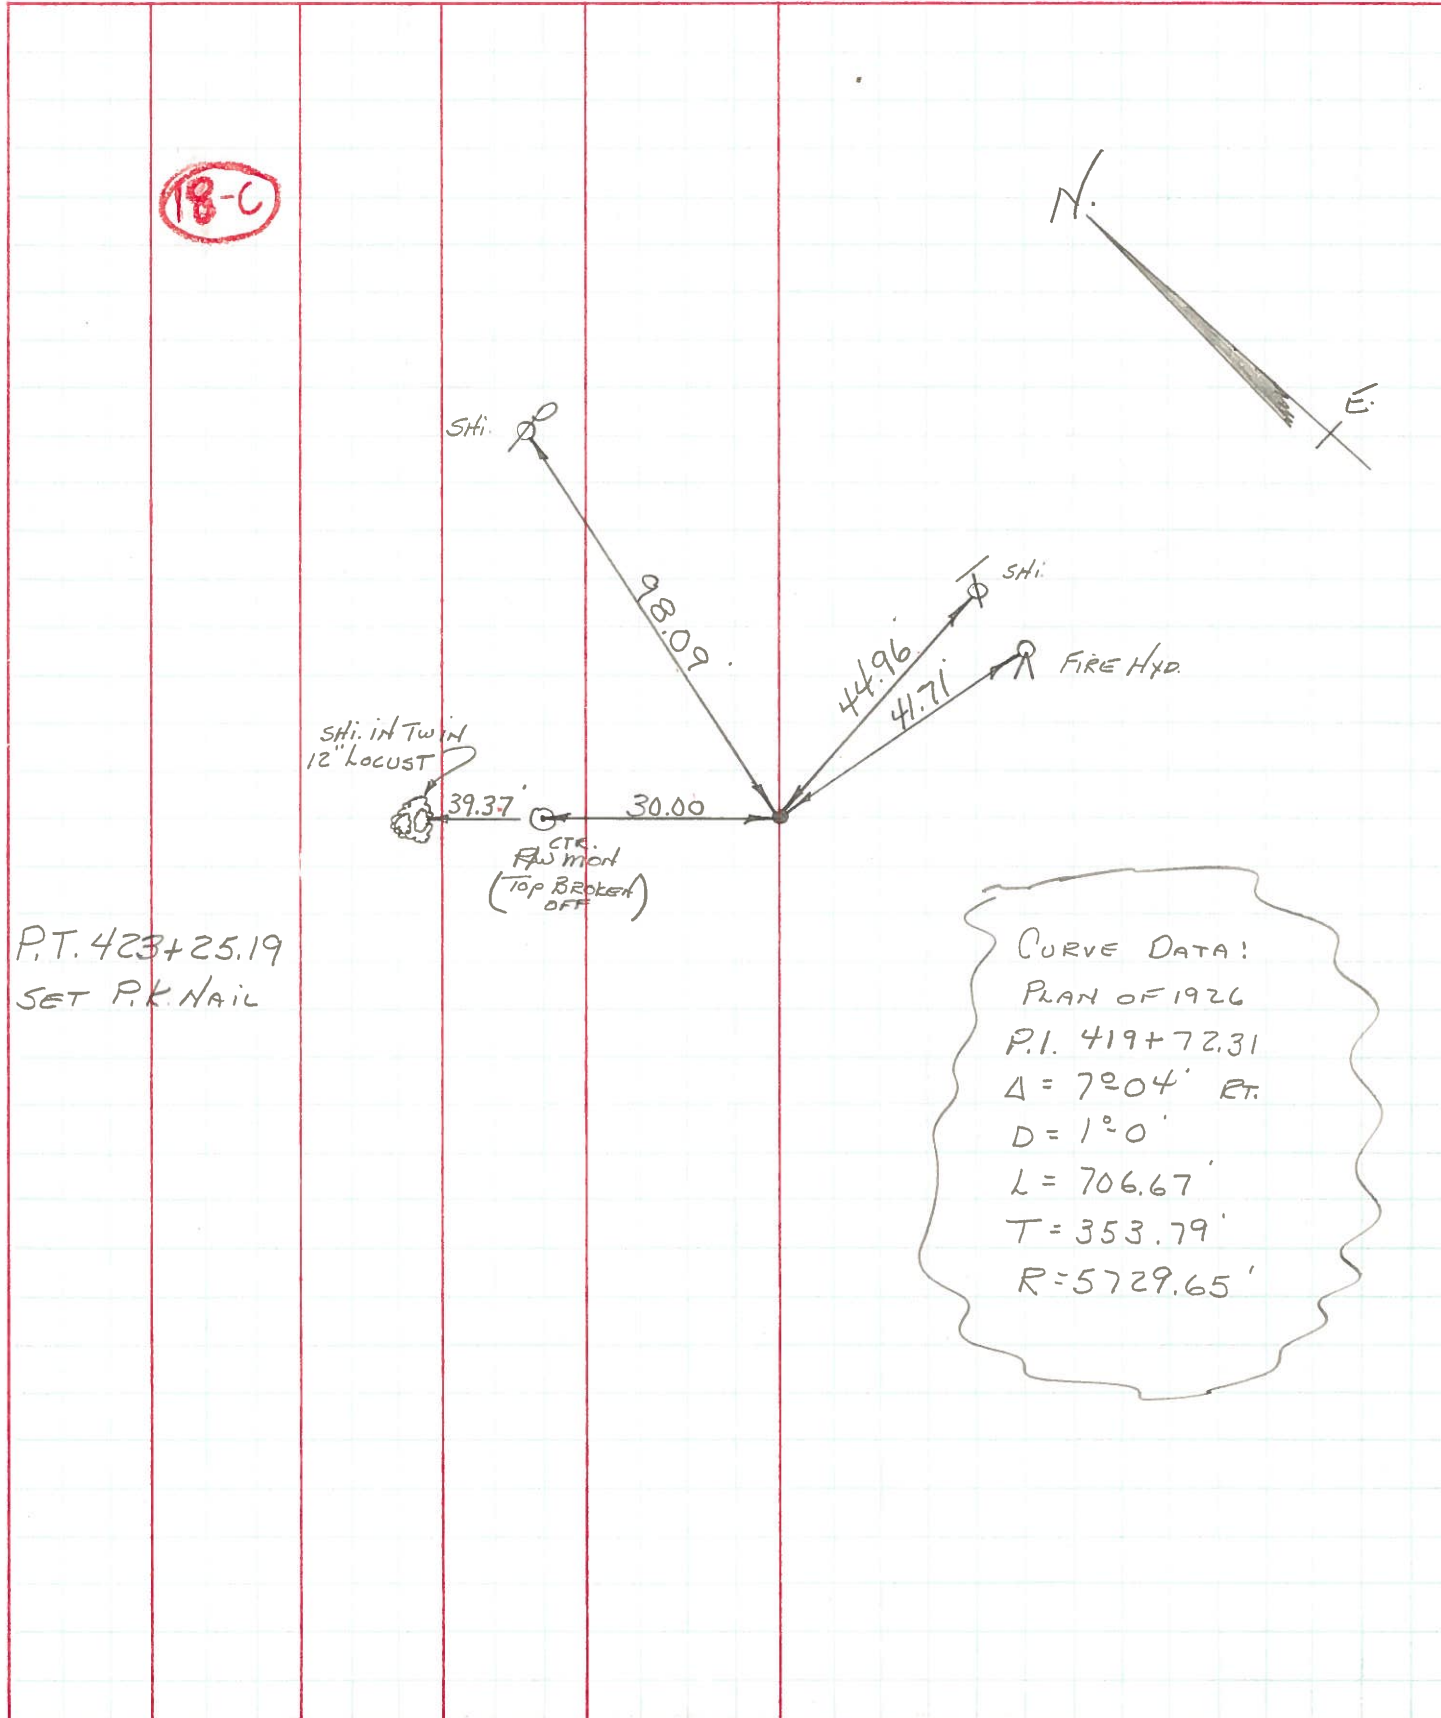 18-C
N.
E.
SHi.
98.09'
SHi.
44.96'
41.71'
FIRE HYD.
SHi. iN TWiN
12" LOCUST
39.37'
30.00
CTR.
R/W MON
(TOP BROKEN
OFF)
P.T. 423+25.19
SET P.K. NAiL
CURVE DATA:
PLAN OF 1926
P.I. 419+72.31
Δ = 7°04' RT.
D = 1°0'
L = 706.67'
T = 353.79'
R = 5729.65'